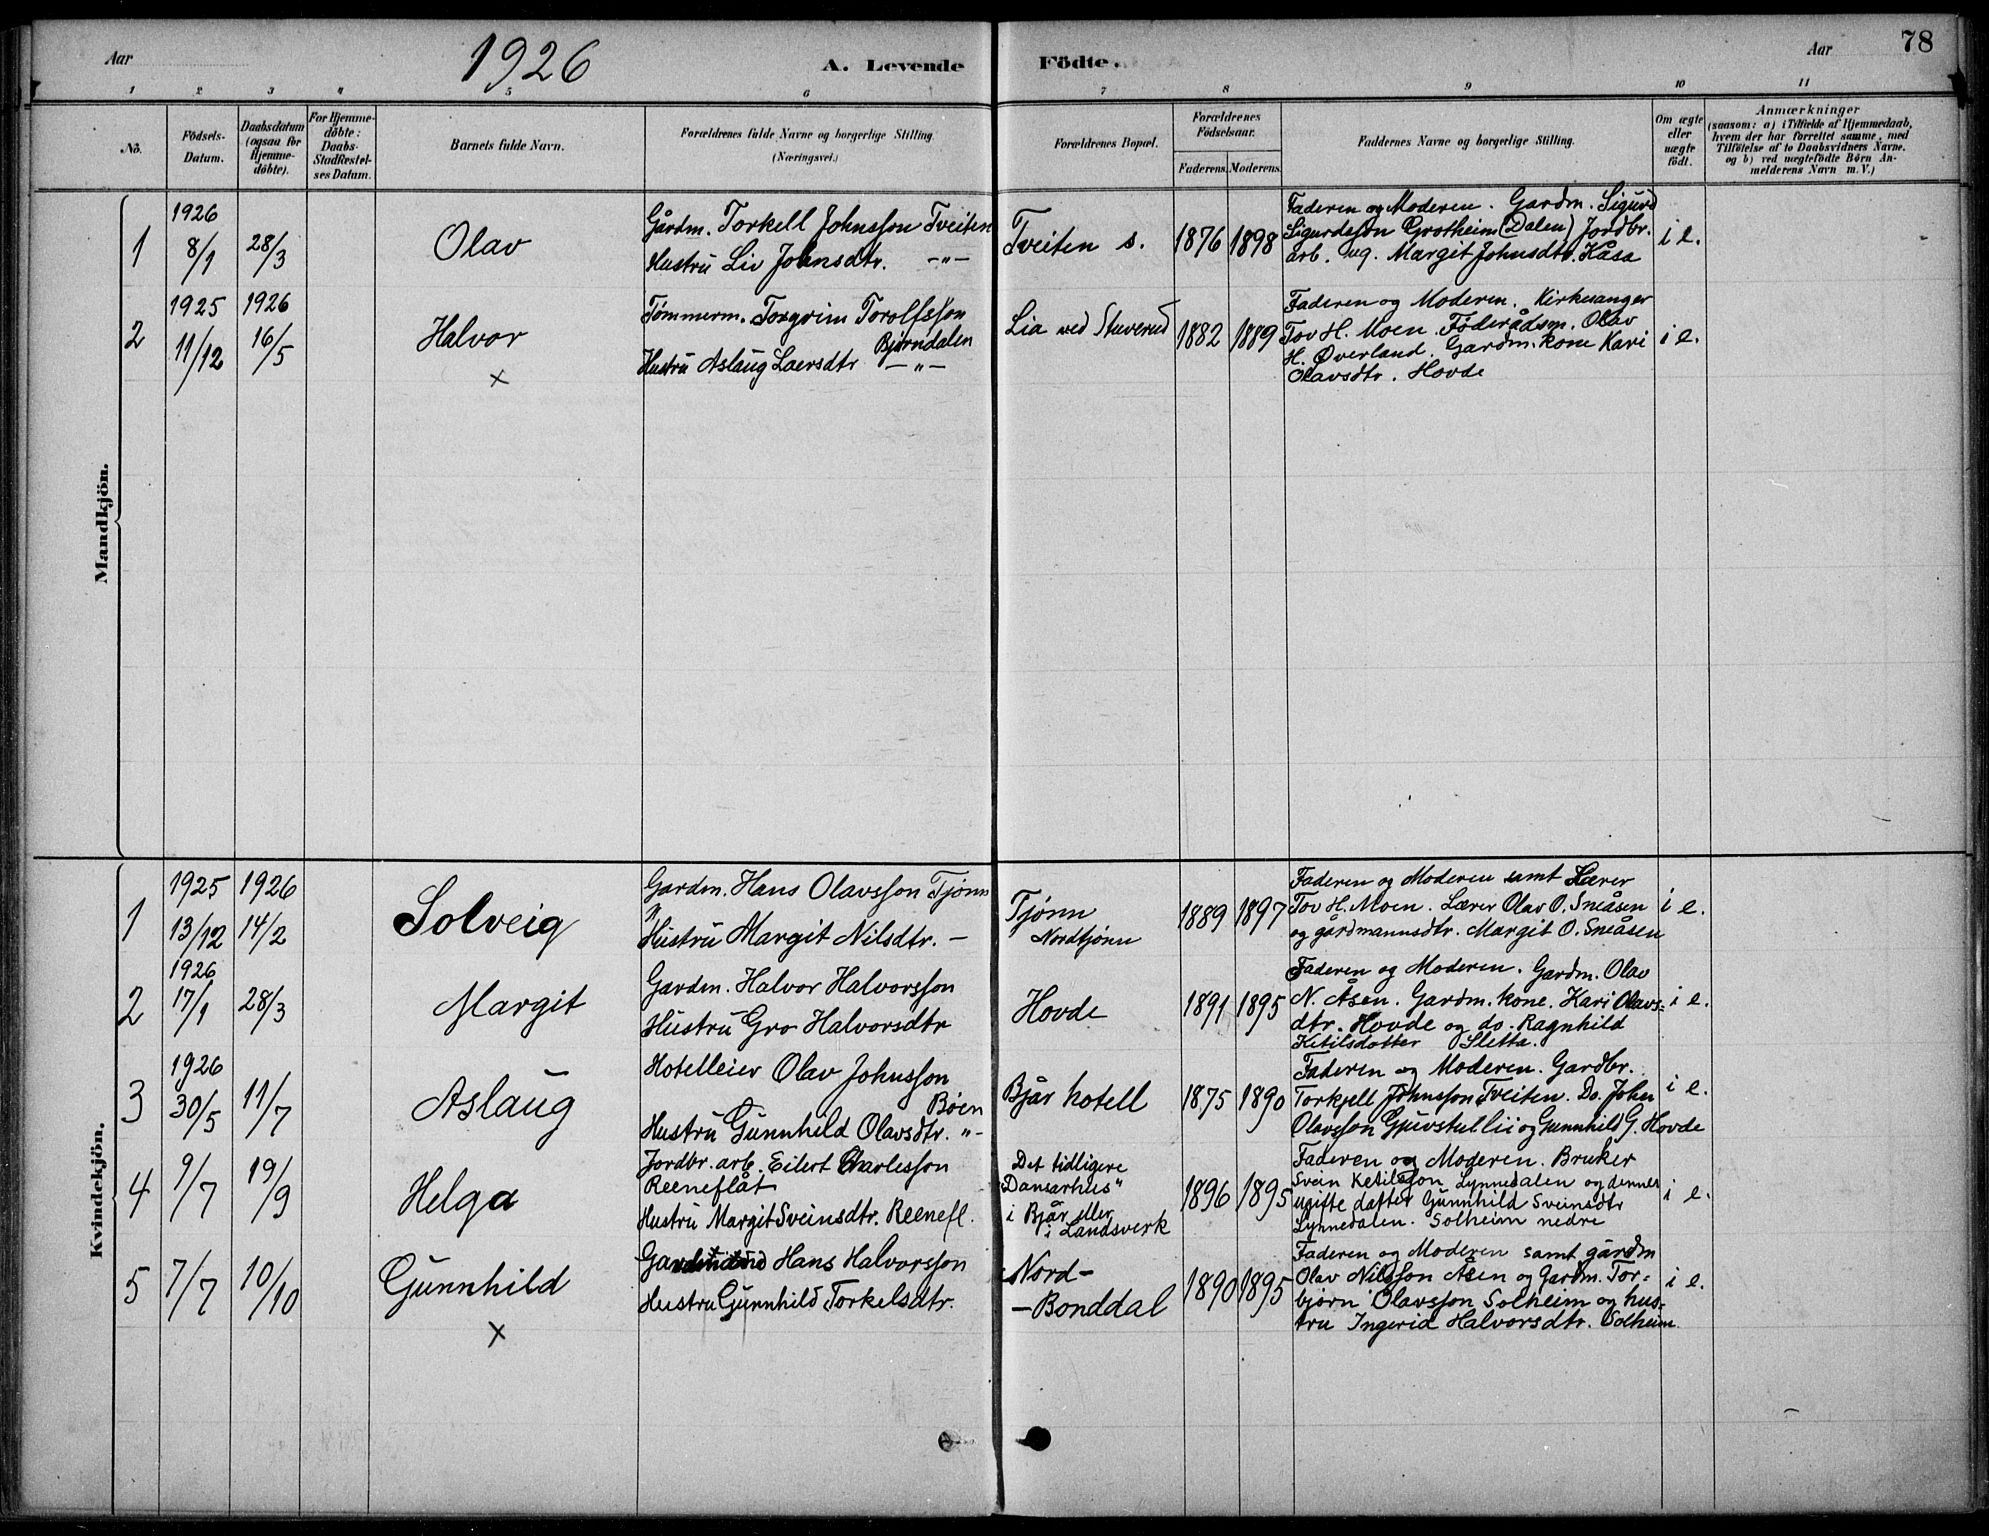 Aar
1926
A. Levende
Födte.
Aar
78
1 2 3 4 5 6 7 8 9 10 11
No.
Födsels-
Datum.
Daabsdatum
(ogsaa for
Hjemme-
döbte).
For Hjemme-
döbte:
Daabs-
Stadfæstel-
ses Datum.
Barnets fulde Navn.
Forældrenes fulde Navne og borgerlige Stilling.
(Næringsvei.)
Forældrenes Bopæl.
Forældrenes
Födselsaar.
Faderens. Moderens.
Faddernes Navne og borgerlige Stilling.
Om ægte
eller
uægte
födt.
Anmærkninger
(saasom: a) i Tilfælde af Hjemmedaab,
hvem der har forrettet samme, med
Tilföielse af to Daabsvidners Navne.
og b) ved uægtefödte Börn An-
melderens Navn m. V.)
Mandkjön.
1
1926
8/1
28/3
Olav
Gårdm. Torkell Johnsson Tveiten
Hustru Liv Johnsdtr. -"-
Tveiten s.
1876
1898
Faderen og Moderen. Gardm. Sigurd
Sigurdsson Grotheim (Dalen) Jordbr.
arb. ug. Margit Johnsdtr. Kåsa
i e.
2
1925
11/12
1926
16/5
Halvor
×
Tømmerm. Torgrim Torolfsson
Bjørndalen
Hustru Aslaug Laersdtr -"-
Lia ved Stuverud
1882
1889
Faderen og Moderen. Kirkesanger
Tov H. Moen. Föderådsm. Olav
H. Øverland. Gardm. kone Kari
Olavsdtr. Hovde
i e.
Kvindekjön.
1
1925
13/12
1926
14/2
Solveig
Gardm. Hans Olavsson Tjønn
Hustru Margit Nilsdtr. -"-
Tjønn
Nordtjønn
1889
1897
Faderen og Moderen samt Lærer
Tov H. Moen. Lærer Olav O. Sneåsen
og gårdmannsdtr. Margit O. Sneåsen
i e.
2
1926
17/1
28/3
Margit
Gardm. Halvor Halvorsson
Hustru Gro Halvorsdtr
Hovde
1891
1895
Faderen og Moderen. Gardm. Olav
N. Åsen. Gardm. kone. Kari Olavs=
dtr. Hovde og do. Ragnhild
Ketilsdotter Sletta.
i e.
3
1926
30/5
11/7
Aslaug
Hotelleier Olav Johnsson
Bøen
Hustru Gunnhild Olavsdtr. "-
Bjår hotell
1875
1890
Faderen og Moderen. Gardbr.
Torkjell Johnsson Tveiten. Do. John
Olavsson Gjuvstullii og Gunnhild G. Hovde
i e.
4
9/7
19/9
Helga
Jordbr. arb. Eilert Charlesson
Reeneflåt
Hustru Margit Sveinsdtr. Reenefl.
Det tidligere
"Dansarhus"
i Bjår eller
i Landsverk
1896
1895
Faderen og Moderen. Bruker
Svein Ketilsson Lynnedalen og dennes
ugifte datter Gunnhild Sveinsdtr
Lynnedalen. Solheim nedre
i e.
5
7/7
10/10
Gunnhild
×
Hans Halvorsson
Hustru Gunnhild Torkelsdtr.
Nord-
-Bonddal
1890
1895
Faderen og Moderen samt gårdm
Olav Nilsson Åsen og Gardm. Tor=
bjørn Olavsson Solheim og hus=
tru Ingerid Halvorsdtr. Solheim
i e.